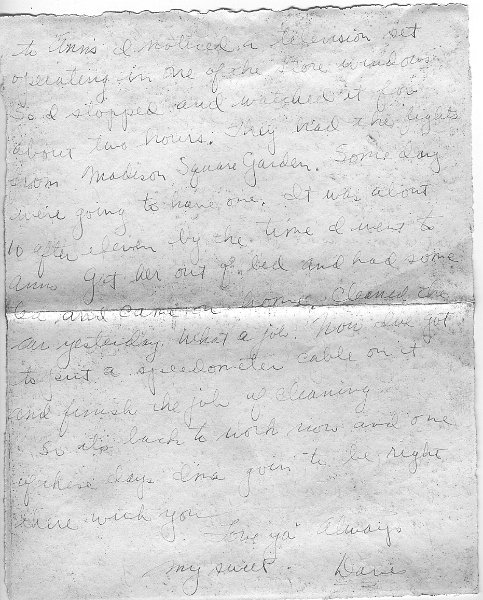 to Ann's I noticed a television set
operating in one of the store windows
So I stopped and watched it for
about two hours. They had the fights
from Madison Square Garden. Some day
were going to have one. It was about
10 after eleven by the time I went to
Anns Got her out of bed and had some
and came on home. Cleaned the
car yesterday. What a job. Now I've got
to put a speedometer cable on it
and finish the job of cleaning
So its back to work now and one
of these days I'ma goin' to be right
there with you
Love ya' always
my sweet. Dave